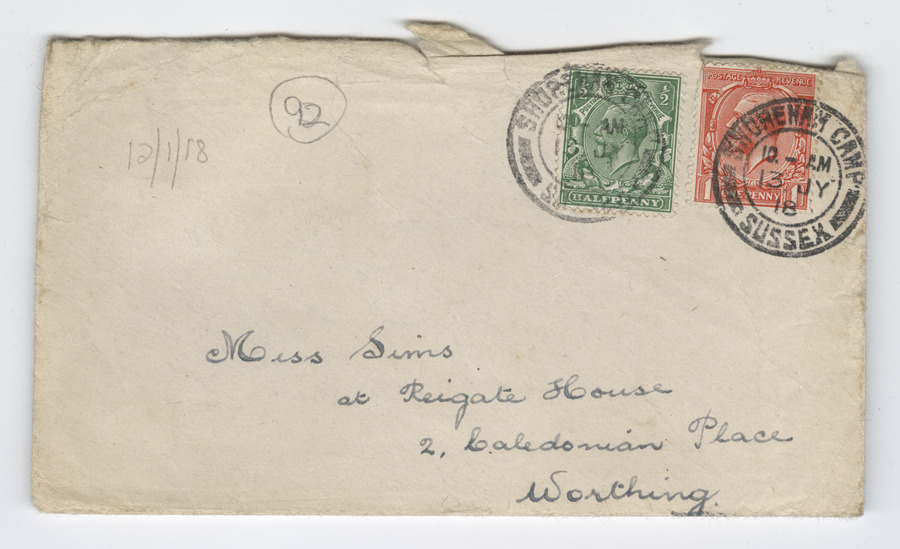 92
12/1/18
½
POSTAGE
HALFPENNY
POSTAGE REVENUE
ONE PENNY
SHOREHAM CAMP
12 - AM
13 JY
18
SUSSEX
AM
Miss Sims
at Reigate House
2, Caledonian Place
Worthing.